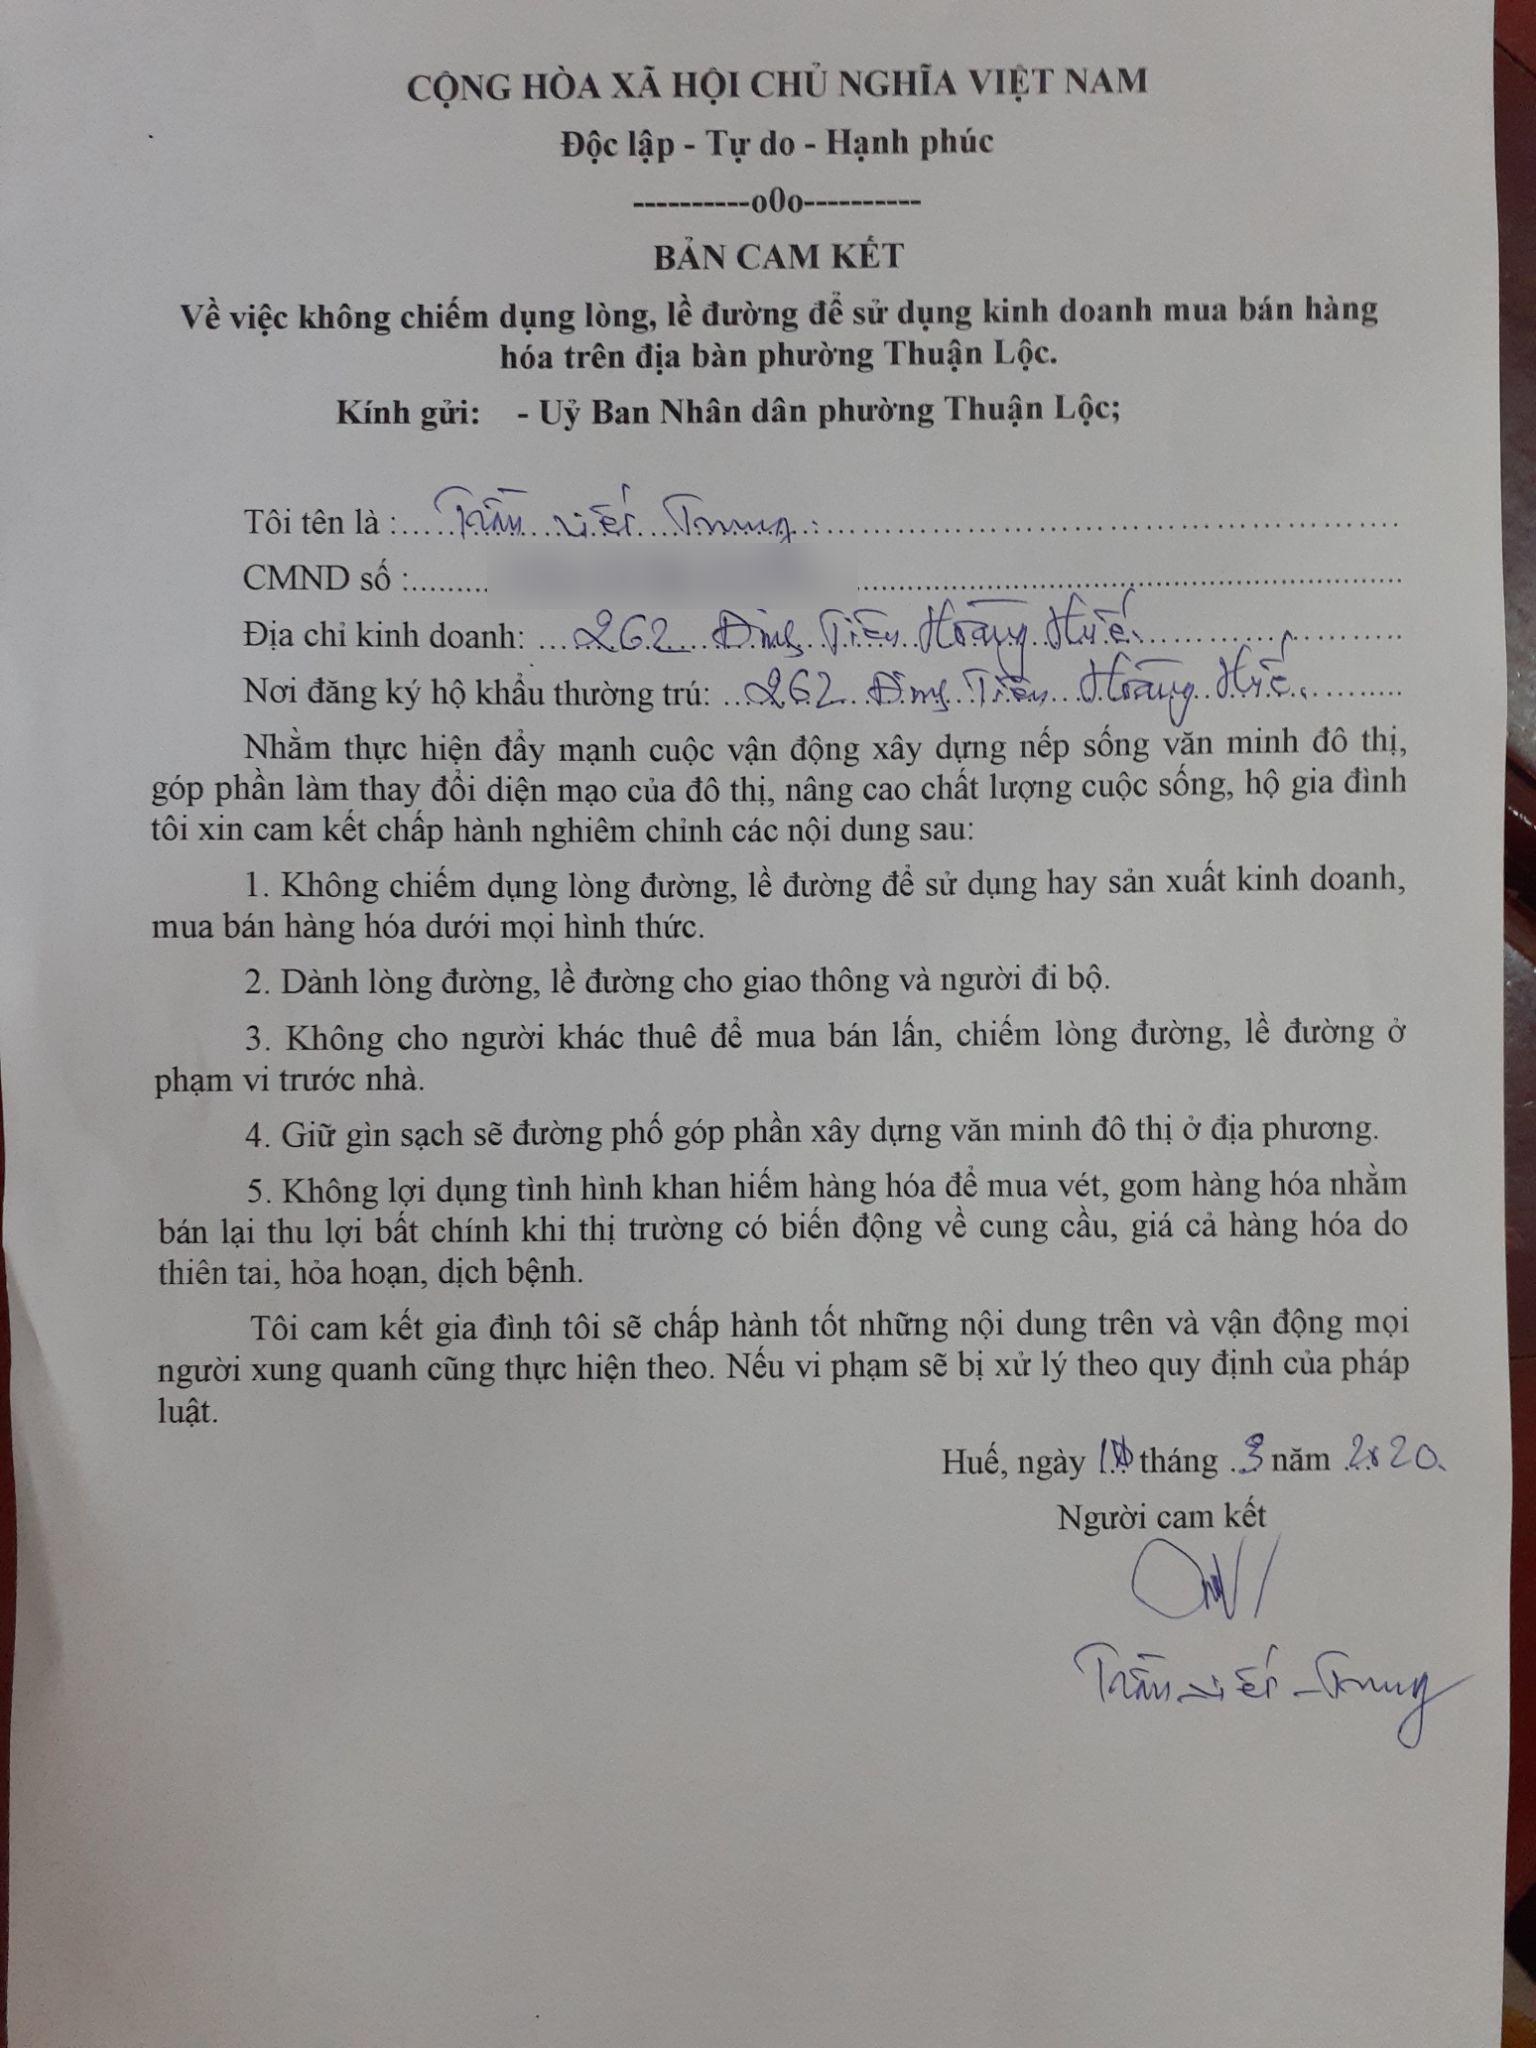 CỘNG HÒA XÃ HỘI CHỦ NGHĨA VIỆT NAM
Độc lập - Tự do - Hạnh phúc
----------o0o----------
BẢN CAM KẾT
Về việc không chiếm dụng lòng, lề đường để sử dụng kinh doanh mua bán hàng
hóa trên địa bàn phường Thuận Lộc.
Kính gửi: - Uỷ Ban Nhân dân phường Thuận Lộc;
Tôi tên là : Trần Viết Trung
CMND số :
Địa chỉ kinh doanh: 262 Đinh Tiên Hoàng Huế.
Nơi đăng ký hộ khẩu thường trú: 262 Đinh Tiên Hoàng Huế.
Nhằm thực hiện đẩy mạnh cuộc vận động xây dựng nếp sống văn minh đô thị,
góp phần làm thay đổi diện mạo của đô thị, nâng cao chất lượng cuộc sống, hộ gia đình
tôi xin cam kết chấp hành nghiêm chỉnh các nội dung sau:
1. Không chiếm dụng lòng đường, lề đường để sử dụng hay sản xuất kinh doanh,
mua bán hàng hóa dưới mọi hình thức.
2. Dành lòng đường, lề đường cho giao thông và người đi bộ.
3. Không cho người khác thuê để mua bán lấn, chiếm lòng đường, lề đường ở
phạm vi trước nhà.
4. Giữ gìn sạch sẽ đường phố góp phần xây dựng văn minh đô thị ở địa phương.
5. Không lợi dụng tình hình khan hiếm hàng hóa để mua vét, gom hàng hóa nhằm
bán lại thu lợi bất chính khi thị trường có biến động về cung cầu, giá cả hàng hóa do
thiên tai, hỏa hoạn, dịch bệnh.
Tôi cam kết gia đình tôi sẽ chấp hành tốt những nội dung trên và vận động mọi
người xung quanh cũng thực hiện theo. Nếu vi phạm sẽ bị xử lý theo quy định của pháp
luật.
Huế, ngày tháng 3 năm 2020.
Người cam kết
Trần Viết Trung